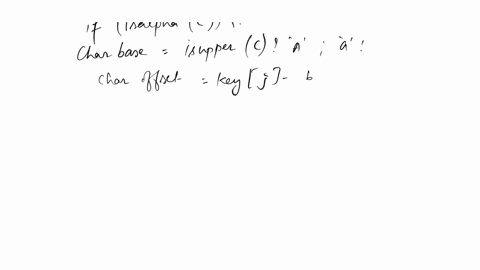 if (isalpha (c)) {
Char base = isupper (c) ? 'A' ; 'a' ;
char offset = key [j] - b